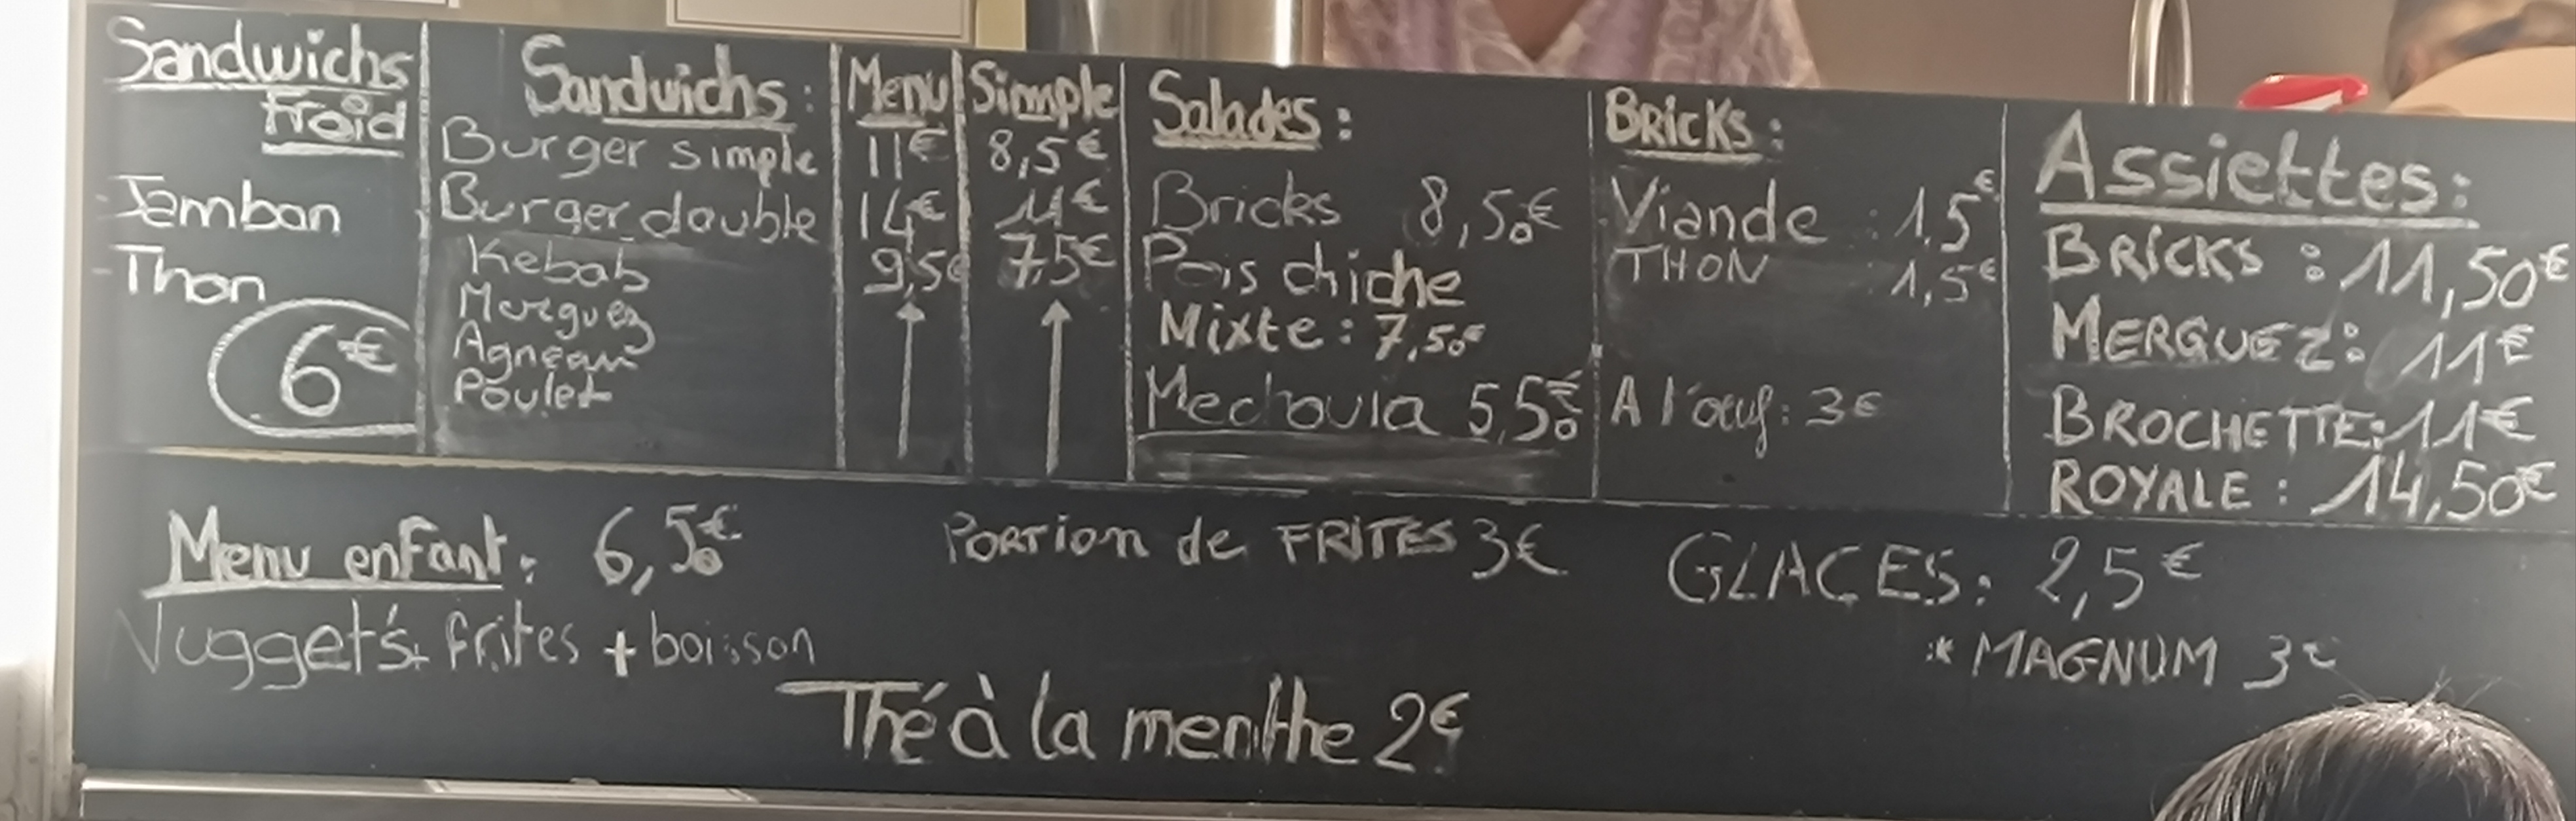 Sandwichs
Froid
- Jambon
- Thon
6€
Sandwichs : Menu Simple
Burger simple 11€ 8,5€
Burger double 14€ 11€
Kebab 9,5€ 7,5€
Merguez
Agneau
Poulet
Salades :
Bricks 8,50€
Pois chiche
Mixte : 7,50€
Mechouia 5,50€
BRICKS :
Viande : 1,5€
THON : 1,5€
A l'œuf : 3€
Assiettes :
BRICKS : 11,50€
MERGUEZ : 11€
BROCHETTE : 11€
ROYALE : 14,50€
Menu enfant : 6,50€
Nugget's + frites + boisson
PORTion de FRITES 3€
GLACES : 2,5€
* MAGNUM 3€
Thé à la menthe 2€